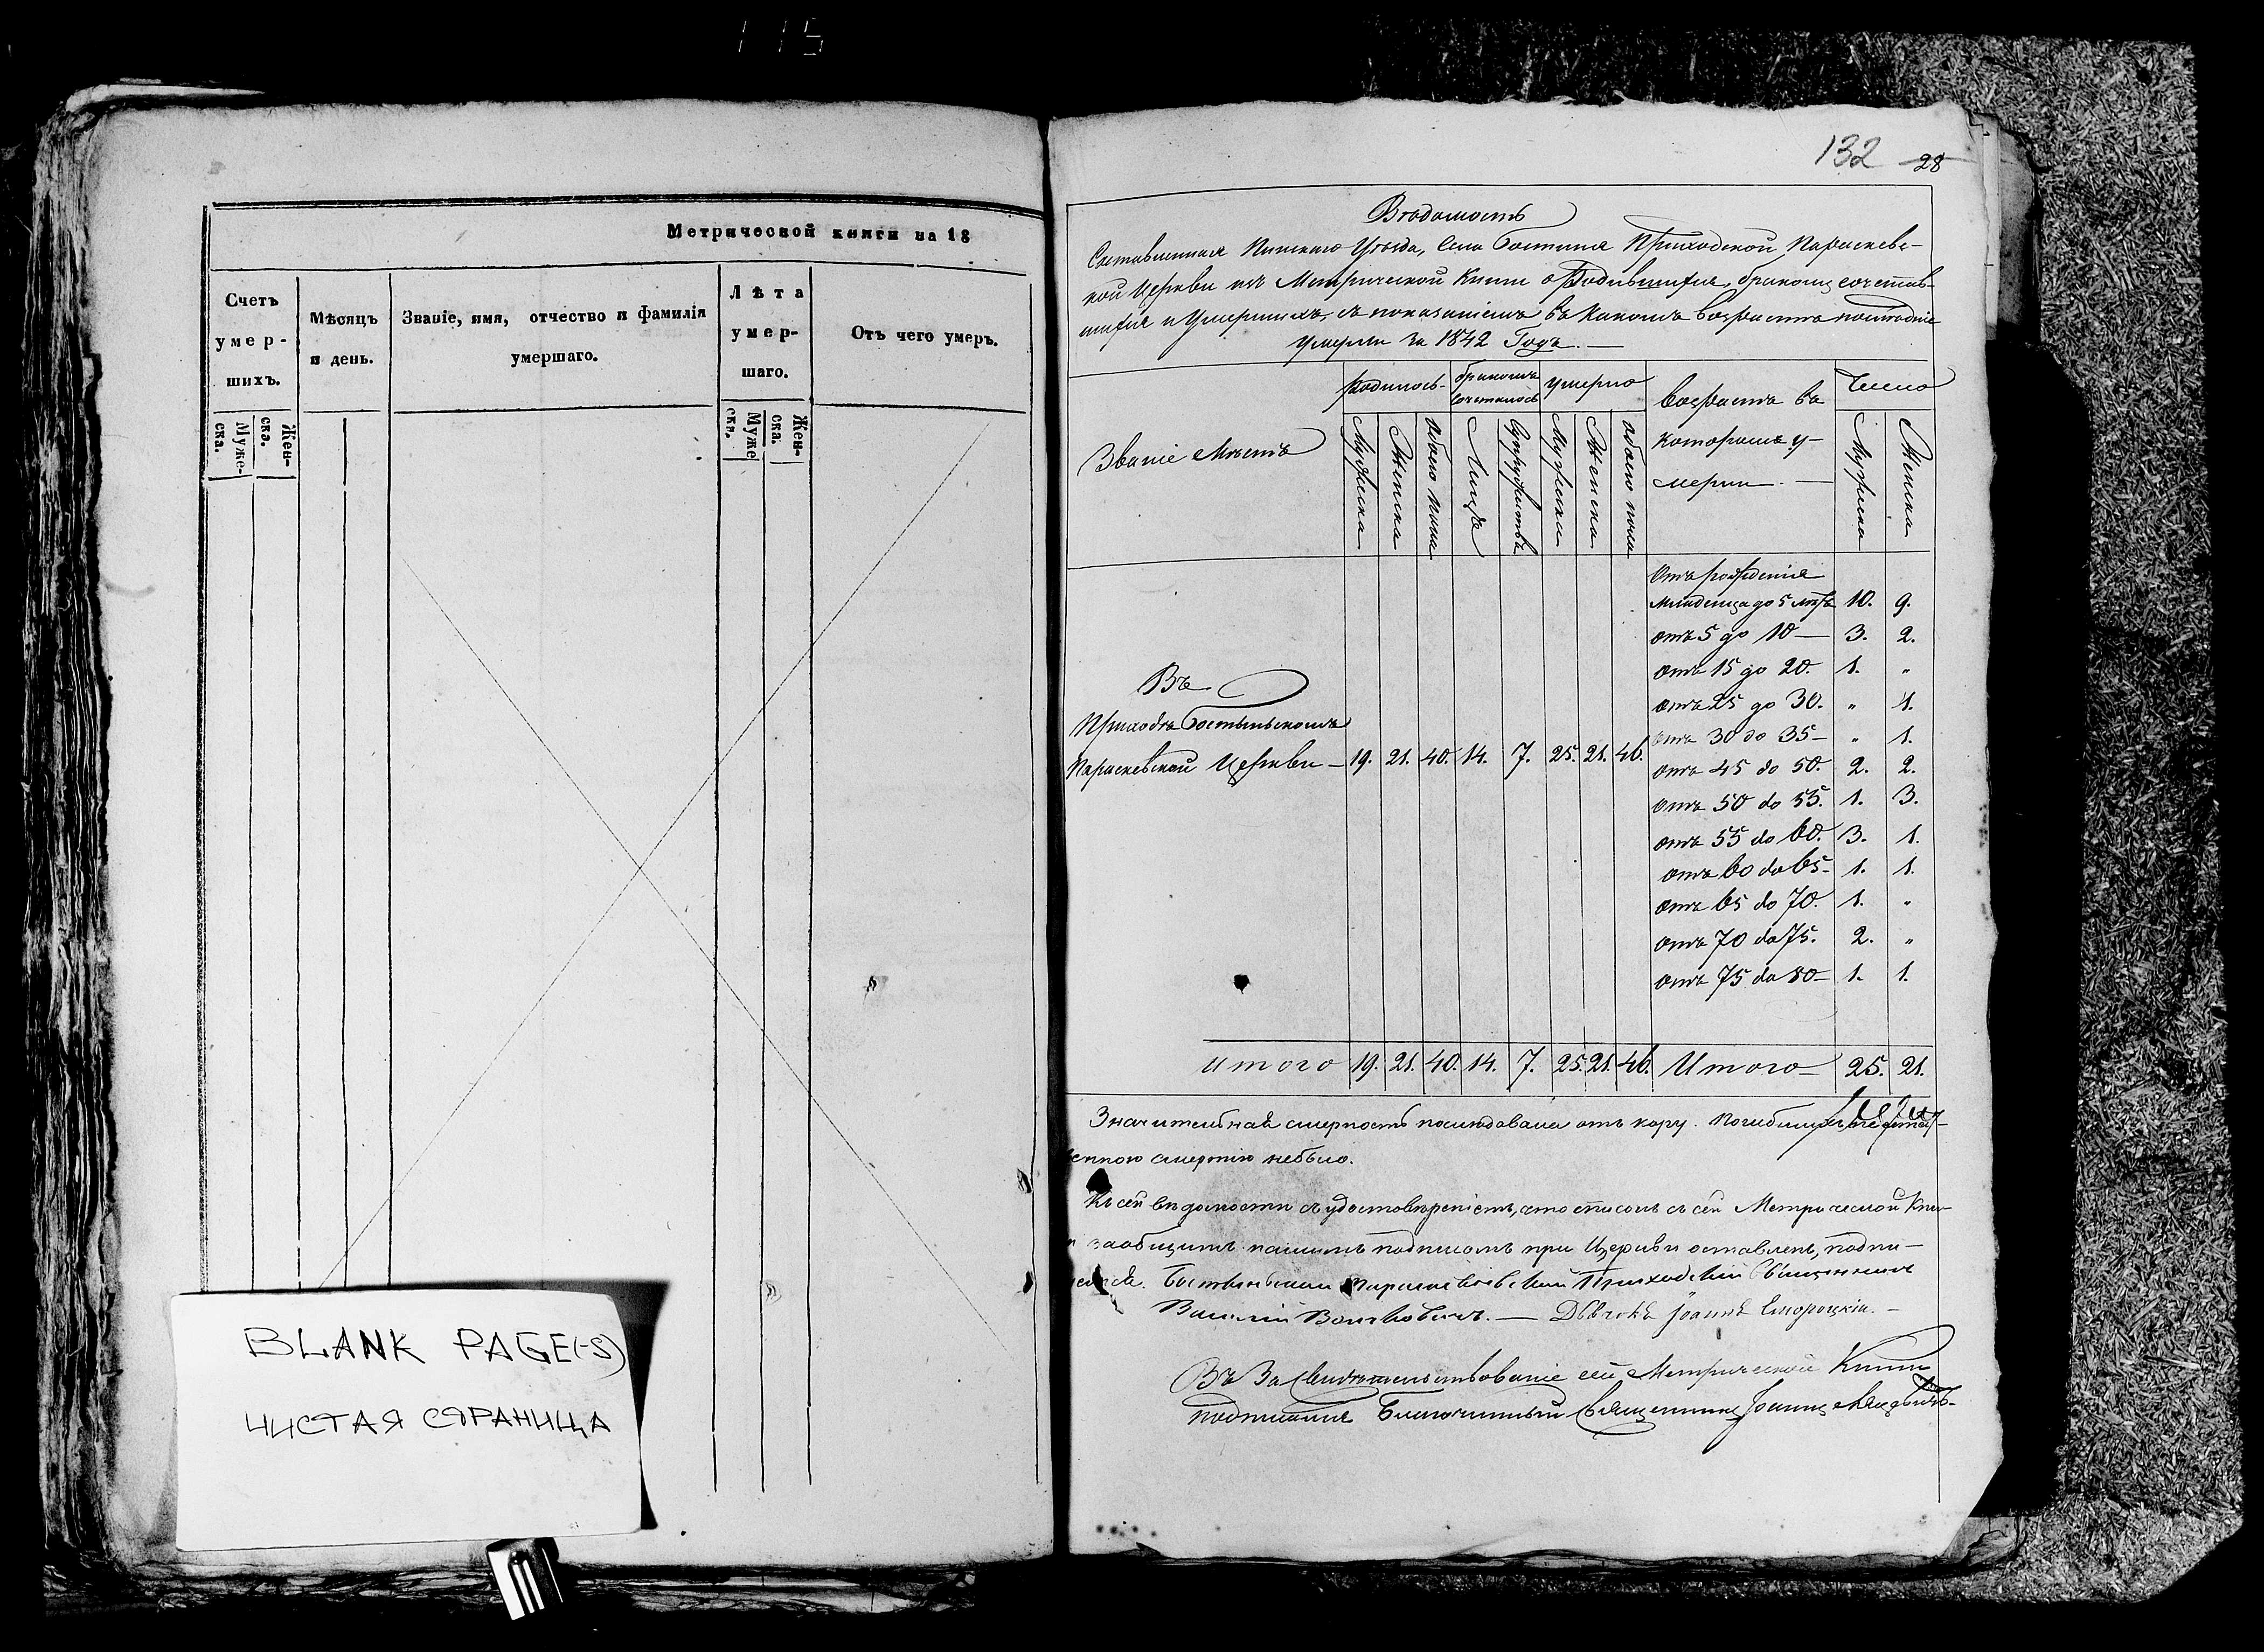 115
Метрической книги на 18
Счетъ умер-шихъ.
Мѣсяцъ и день.
Званіе, имя, отчество и фамилія умершаго.
Лѣта умер-шаго.
Отъ чего умеръ.
Муже-ска.
Жен-ска.
Муже ска.
Жен-ска.
BLANK PAGE(-S)
ЧИСТАЯ СТРАНИЦА
132 28
Вѣдомость
Составленная Пинскаго Уѣзда, Села Бостыня Приходской Параскевс-
кой Церкви изъ Метрической Книги о Родившихся, бракомъ сочетав-
шихся и Умершихъ, съ показаніемъ въ какомъ возрастѣ послѣдніе
умерли за 1842 Годъ. —
Званіе Мѣстъ
Родилось
бракомъ сочеталось
умерло
Возрастъ въ которомъ у-мерли. —
Число
Мужеска
Женска
обоего пола
Лицъ
Супружествъ
Мужеска
Женска
обоего пола
Мужеска
Женска
Отъ рожденія
младенца до 5 лѣтъ 10. 9.
отъ 5 до 10 — 3. 2.
отъ 15 до 20. 1. "
отъ 25 до 30. " 1.
отъ 30 до 35 — " 1.
отъ 45 до 50. 2. 2.
отъ 50 до 55. 1. 3.
отъ 55 до 60. 3. 1.
отъ 60 до 65 — 1. 1.
отъ 65 до 70. 1. "
отъ 70 до 75. 2. "
отъ 75 до 80 — 1. 1.
Въ
Приходѣ Бостыньскомъ
Параскевской Церкви — 19. 21. 40. 14. 7. 25. 21. 46.
Итого 19. 21. 40. 14. 7. 25. 21. 46. Итого — 25. 21.
Значительная смерность послѣдовала отъ кору. Погибших
енною смертію небыло.
Къ сей вѣдомости съ удостовѣреніемъ, что списокъ съ сей Метрической Кни-
заобщимъ нашимъ подписомъ при Церкви оставленъ, подпи-
Бостыньской Параскевіевской Приходскій Священникъ
Василій Волчковичъ. — Дьячокъ Іоаннъ Сикорскій. —
Въ Засвидѣтельствованіе сей Метрической Книги
подписался Благочинный Священникъ Іоаннъ